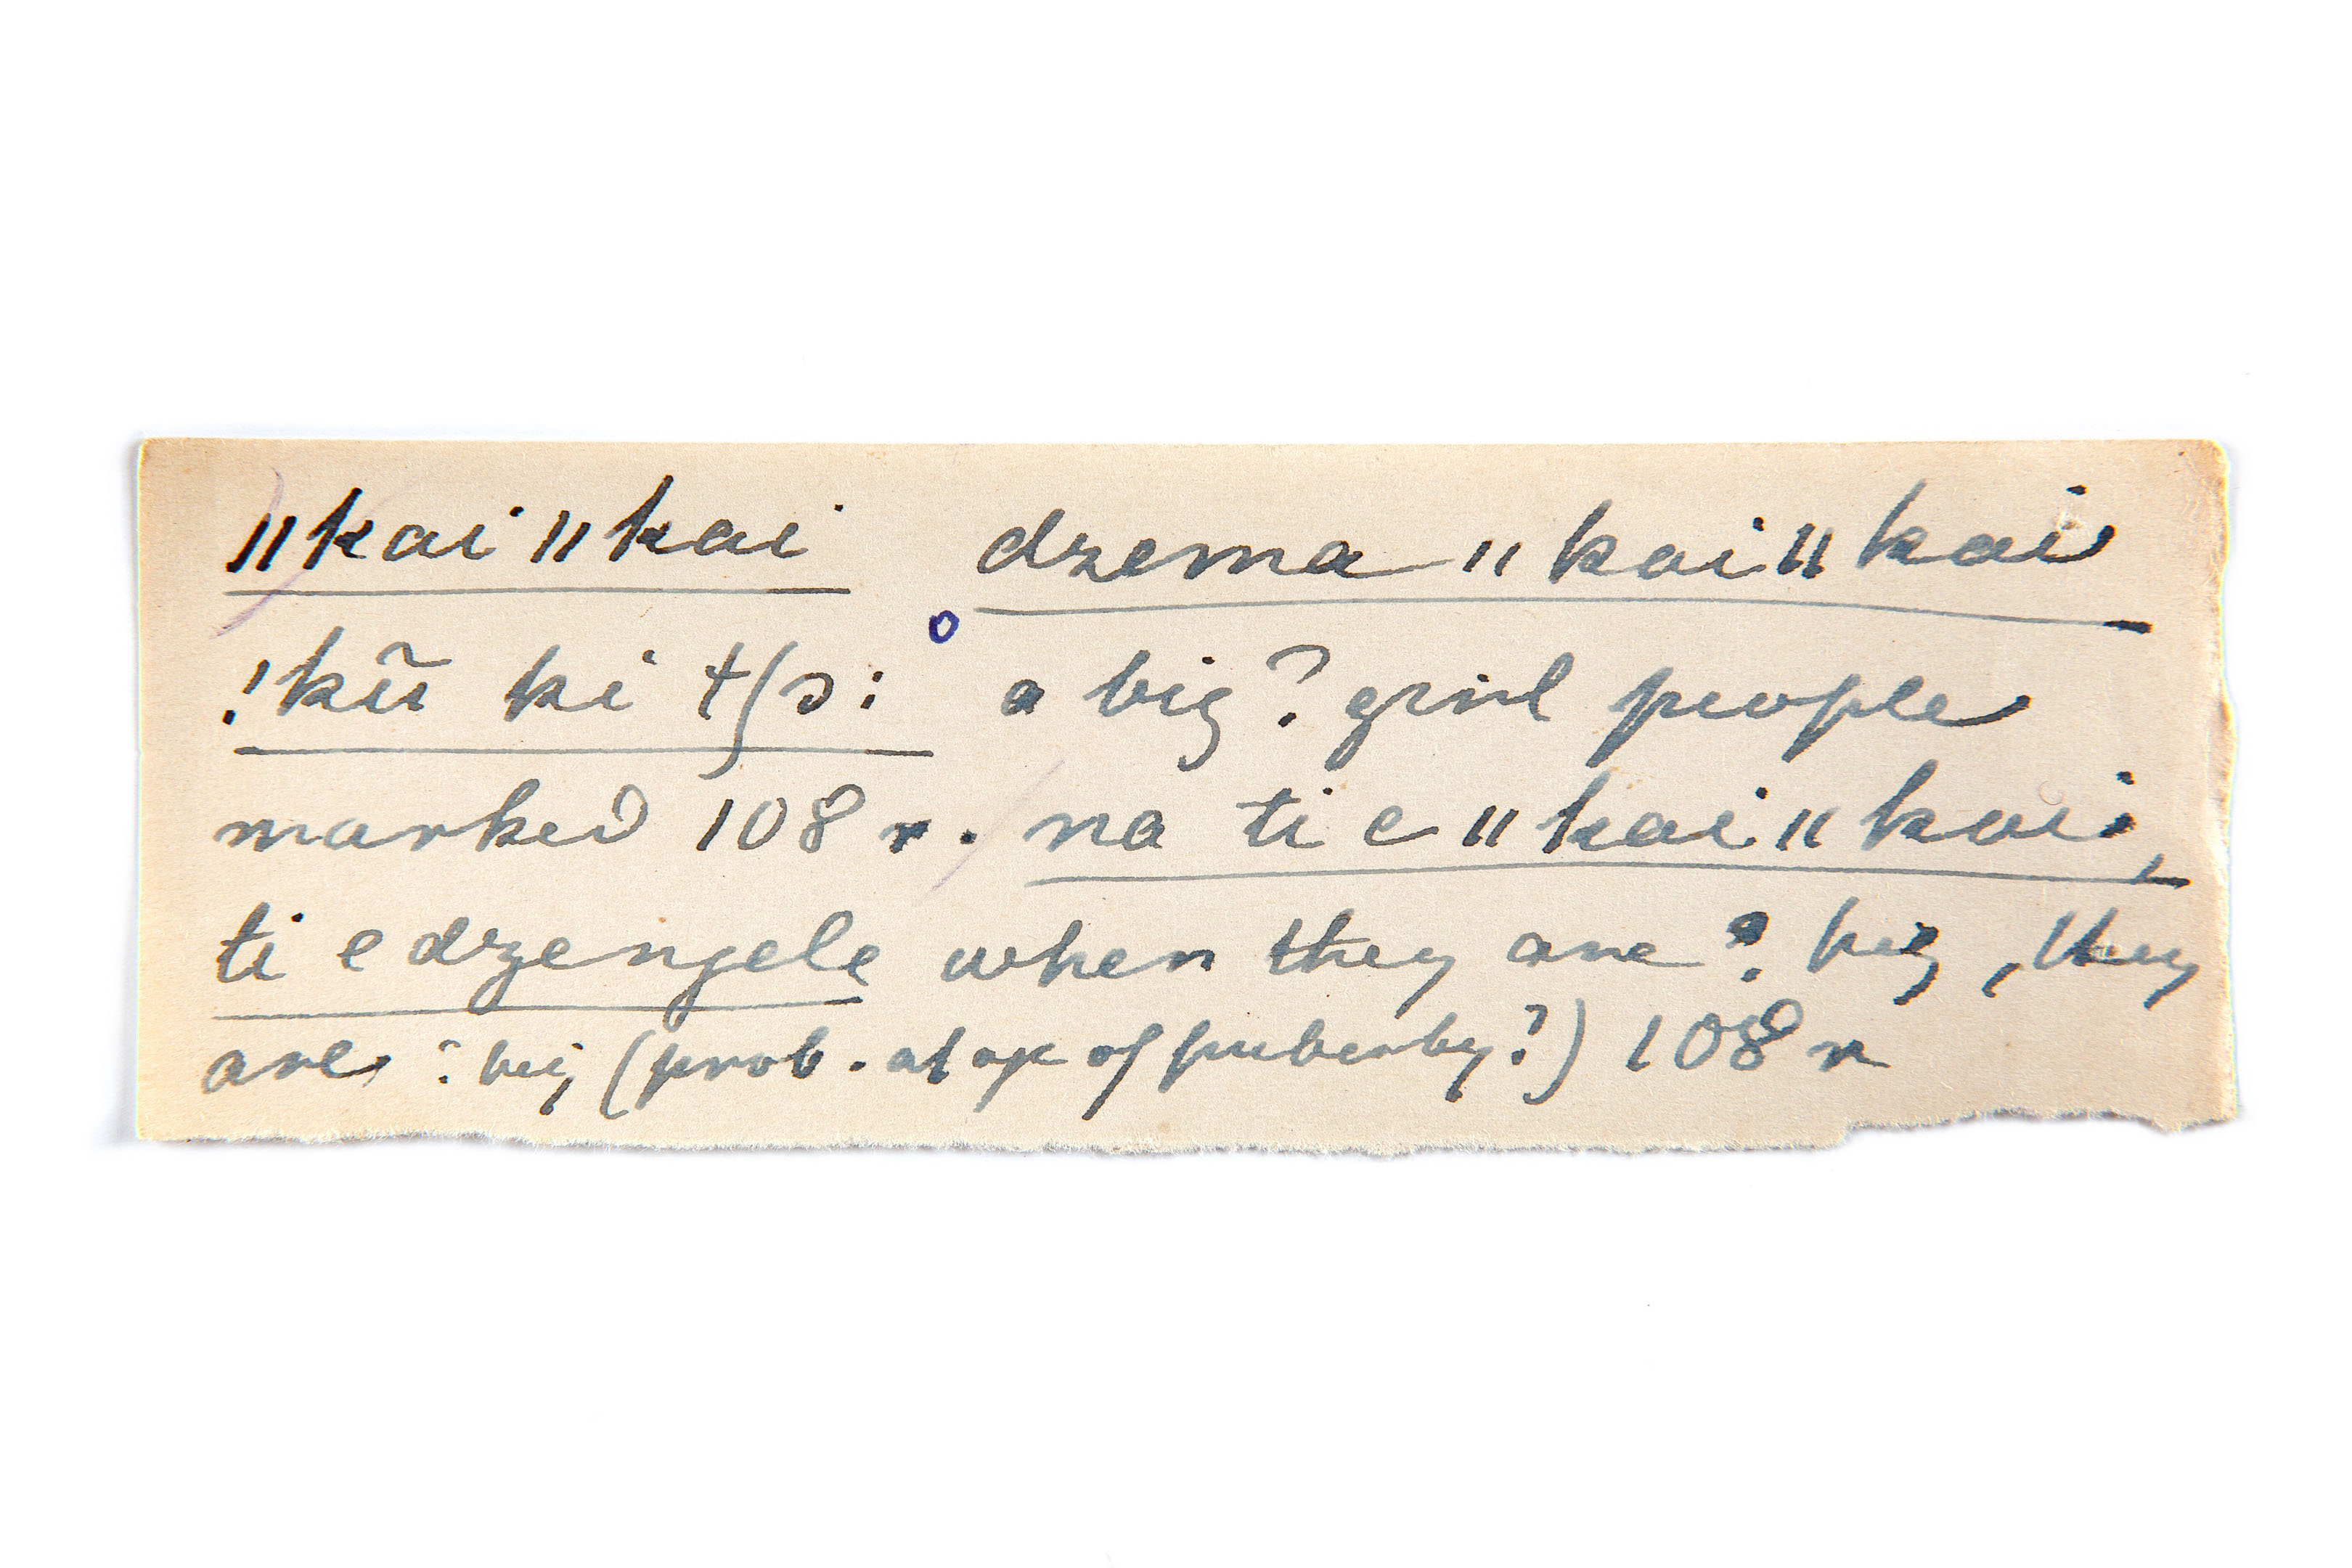 ǁkaiǁkai dzema ǁkaiǁkai
!kũ ki tʃɔ: a big? girl people
marked 108 r. na ti e ǁkaiǁkai,
ti e dzengele when they are ? big, they
are ? big (prob. at age of puberty?) 108 r